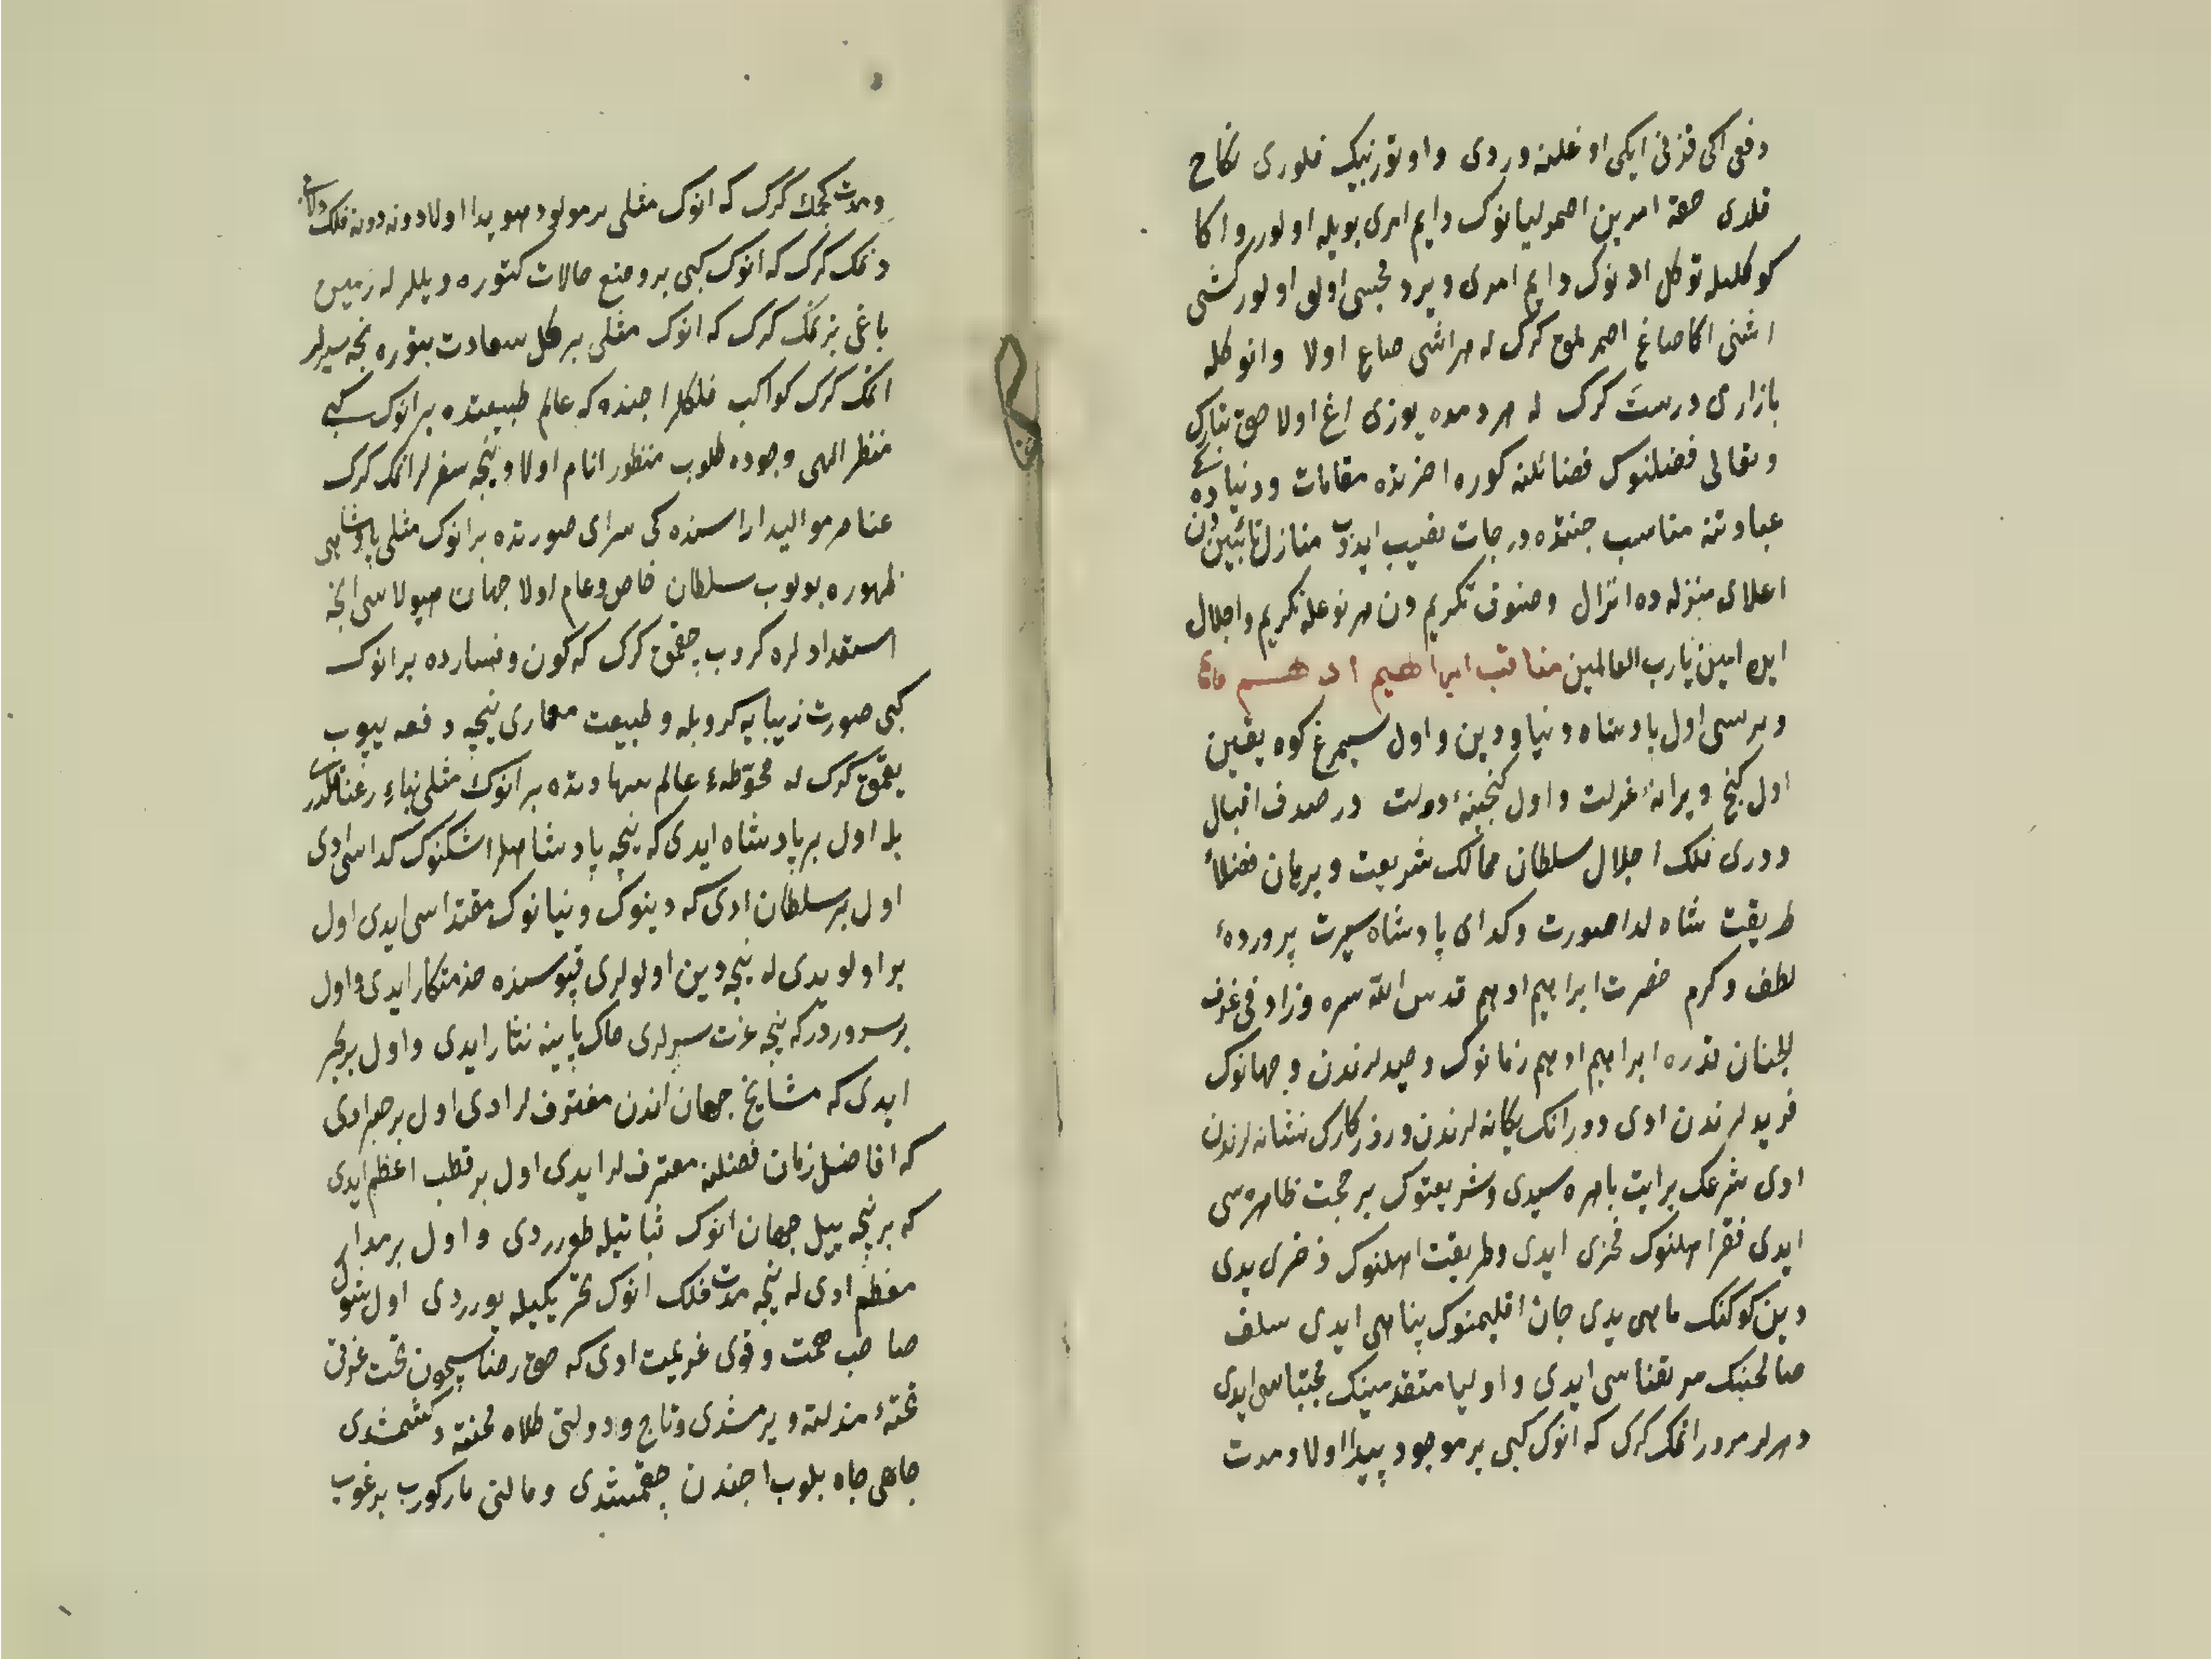 دفعی اکی قزنی ایکی اوغلنه وردی و اوتوز بیک فلوری نکاح
قلدی حقه امرین اصمرلیانوک دایم امری بویله اولور و اکا
کوکلیله توکل ادنوک دایم امری ویرد مجسی اولق اولور کشی
اشنی اکا صاغ اصمرلمق کرک له هر اشی صاغ اولا وانوکله
بازاری درست کرک له هر دمده یوزی اغ اولا حق تبارک
و تعالی فضلنوک فضائلنه کوره اخرتده مقامات و دنیاده
عبادتنه مناسب جنتده درجات نصیب ایدوب منازل تائبین دن
اعلای منزله ده انزال و صنوف تکریم دن هر نوعله تکریم و اجلال
ایله امین یارب العالمین مناقب ابراهیم ادهم
و بریسی اول پادشاه دنیا و دین و اول سیمرغ کوه یقین
اول کنج ویرانهٔ عزلت و اول کنجینهٔ دولت در صدف اقبال
و دری فلک اجلال سلطان ممالک شریعت و برهان فضلاء
طریقت شاه کدا صورت و کدای پادشاه سیرت پروردهٔ
لطف و کرم حضرت ابراهیم ادهم قدس الله سره و زاد فی غرف
الجنان قدره ابراهیم ادهم زمانوک وحیدلرندن و جهانوک
فریدلرندن ادی دورانک یکانه لرندن و روزکارک نشانه لرندن
ادی شرعک بر ایت باهره سیدی و شریعتوک بر حجت ظاهره سی
ایدی فقر اهلنوک فخری ایدی و طریقت اهلنوک ذخری یدی
دین کوکنک ماهی یدی جان اقلیمنوک پناهی ایدی سلف
صالحینک مرتضاسی ایدی و اولیا متقدمینک مجتباسی ایدی
دهرلر مرور اتمک کرک که انوک کبی بر موجود پیدا اولا و مدت
و مدت کچمک کرک که انوک مثلی بر مولود هویدا اولا دونه دونه فلک دولابی
دنمک کرک که انوک کبی بر وضع حالات کتوره و ییللر له زمین
باغی بزنمک کرک که انوک مثلی بر کل سعادت بتوره نجه سیرلر
اتمک کرک کواکب فلکلر اجنده که عالم طبیعتده بر انوک کبی
منظر الهی وجوده کلوب منظور انام اولا و نیجه سفرلر اتمک کرک
عناصر موالید اراسنده کی سرای صورتده بر انوک مثلی پادشاهی
ظهوره بولوب سلطان خاص و عام اولا جهان هیولاسی انجه
استعدادلره کروب چقمق کرک که کون و فسادده بر انوک
کبی صورت زیبایه کروبله و طبیعت معماری نیچه دفعه یپوب
یقمق کرک له محوطهٔ عالم بنهادنده بر انوک مثلی بناء رعنا
یله اول بر پادشاه ایدی که نیجه پادشاهلر اشکنوک کداسی ادی
اول بر سلطان ادی که دینوک و دنیانوک مقتداسی ایدی اول
بر اولو یدی له نیجه دین اولولری قپوسنده خدمتکار ایدی و اول
بر سروردر که نیجه عزت سرلری خاک پاینه نثار ایدی و اول بر بحر
ایدی که مشایخ جهان اندن مغترف لر ادی اول بر حبر ادی
که افاضل زمان فضلنه معترف لر ایدی اول بر قطب اعظم ایدی
که بر نیجه ییل جهان انوک ثباتیله طورردی و اول بر مدار
معظم ادی له نیجه مدت فلک انوک تحریکیله یورردی اول شول
صاحب همت و قوی عزیمت ادی که حق رضاسیچون تخت عزتی
تختهٔ مذلته ویرمشدی و تاج و دولتی کلاه محنته دکشمشدی
جاهی چاه بلوب اجندن چقمشدی و مالنی مار کورب